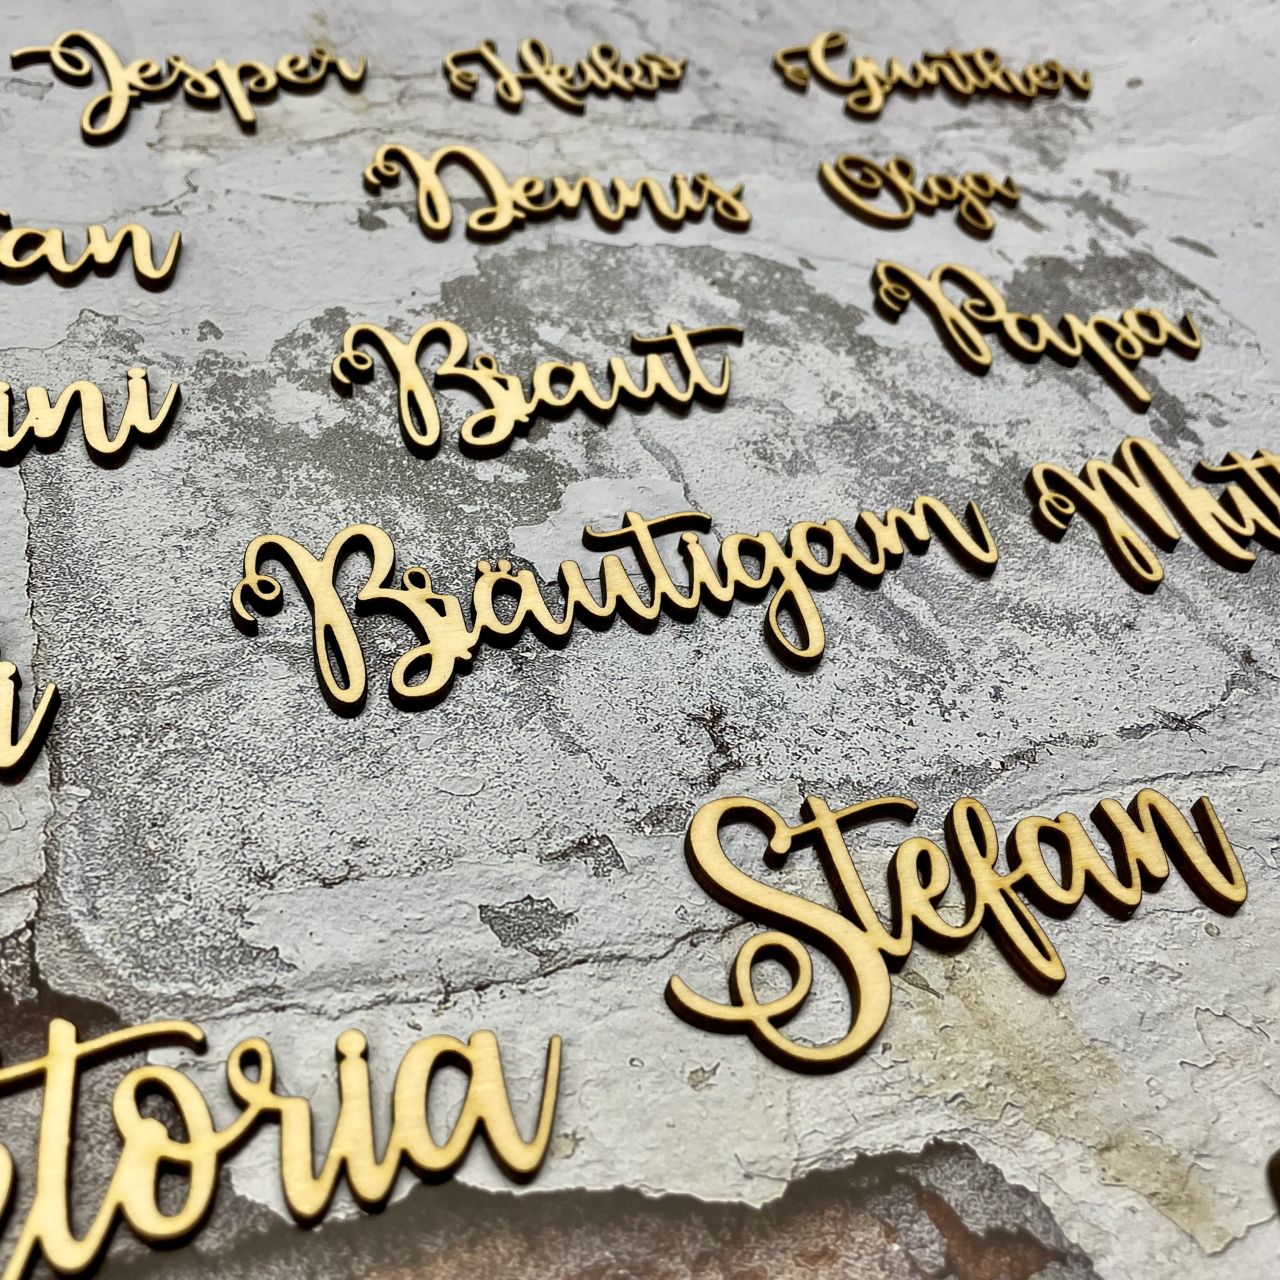 Jesper Heiko Gunther
Dennis Olga
an Papa
ini Braut
Bräutigam Mutt
i Stefan
toria